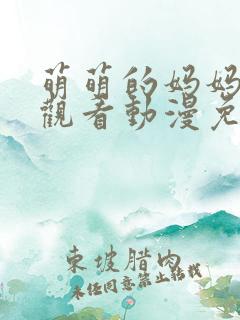 萌萌的妈妈
觀看動漫免
東坡腊肉
未经同意禁止转载